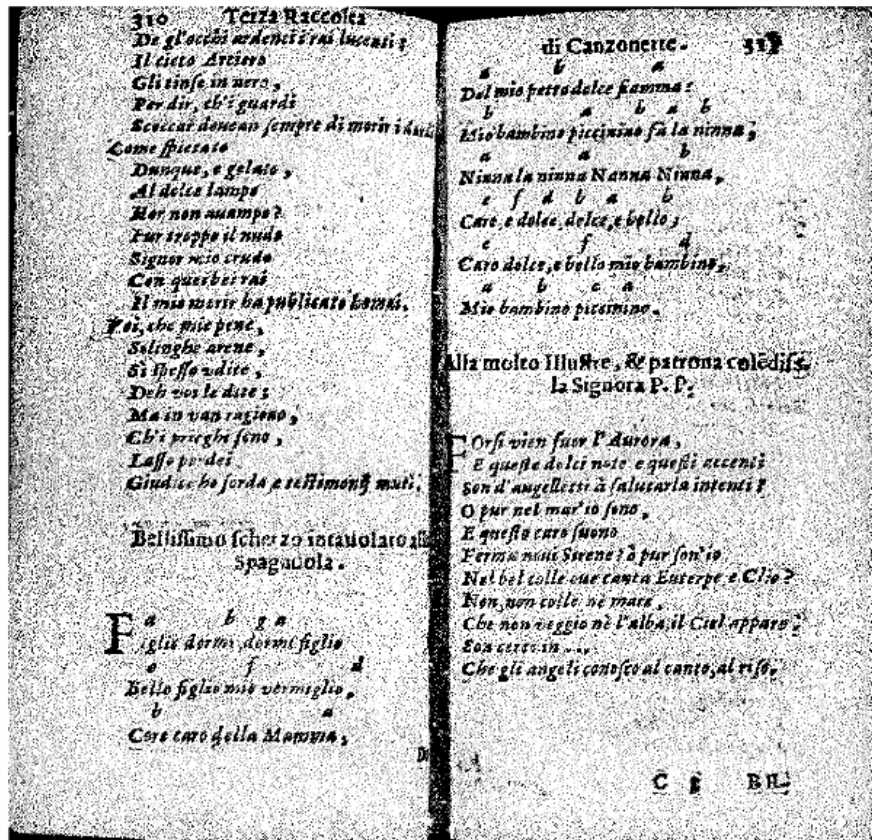 310 Terza Raccolta
De gl'occhi ardenti i rai lucenti;
Il cieco Arciero
Gli tinse in nero,
Per dir, ch'i guardi
Scoccar doueano sempre di morir i
Come spietato
Dunque, e gelato,
Al dolce lampo
Hor non auampo?
Pur troppo il nudo
Signor mio crudo
Con questi rai
Il mio morir ha publicato homai.
Voi, che mie pene,
Solinghe arene,
Si spesso udite,
Deh voi le dite;
Ma in van ragiono,
Ch'i prieghi sono,
Lasso perdei
Giudice ho sorda e testimonij muti.
Bellissimo scherzo intauolato alla
Spagnuola.
a b g a
Figlio dormi, dormi figlio
e f d
Bello figlio mio vermiglio,
b a
Core caro della Mamma,
D
di Canzonette. 311
a b a
Del mio petto dolce fiamma:
b a b a b
Mio bambino piccinino fà la ninna,
a a b
Ninna la ninna Nanna Ninna,
e f d b a b
Caro, e dolce, dolce, e bello;
e f d
Caro dolce, e bello mio bambino,
a b c a
Mio bambino piccinino.
Alla molto Illustre, & patrona colēdiss.
la Signora P. P.
Forsi vien fuor l'Aurora,
E queste dolci note e questi accenti
Son d'augelletti à salutarla intenti?
O pur nel mar'io sono,
E questo caro suono
Ferma naui Sirene? ò pur son'io
Nel bel colle oue canta Euterpe, e Clio?
Non, non colle nè mare,
Che non veggio nè l'alba, il Ciel appare;
Son certo in ...,
Che gli angeli conosco al canto, al riso.
C Bel-